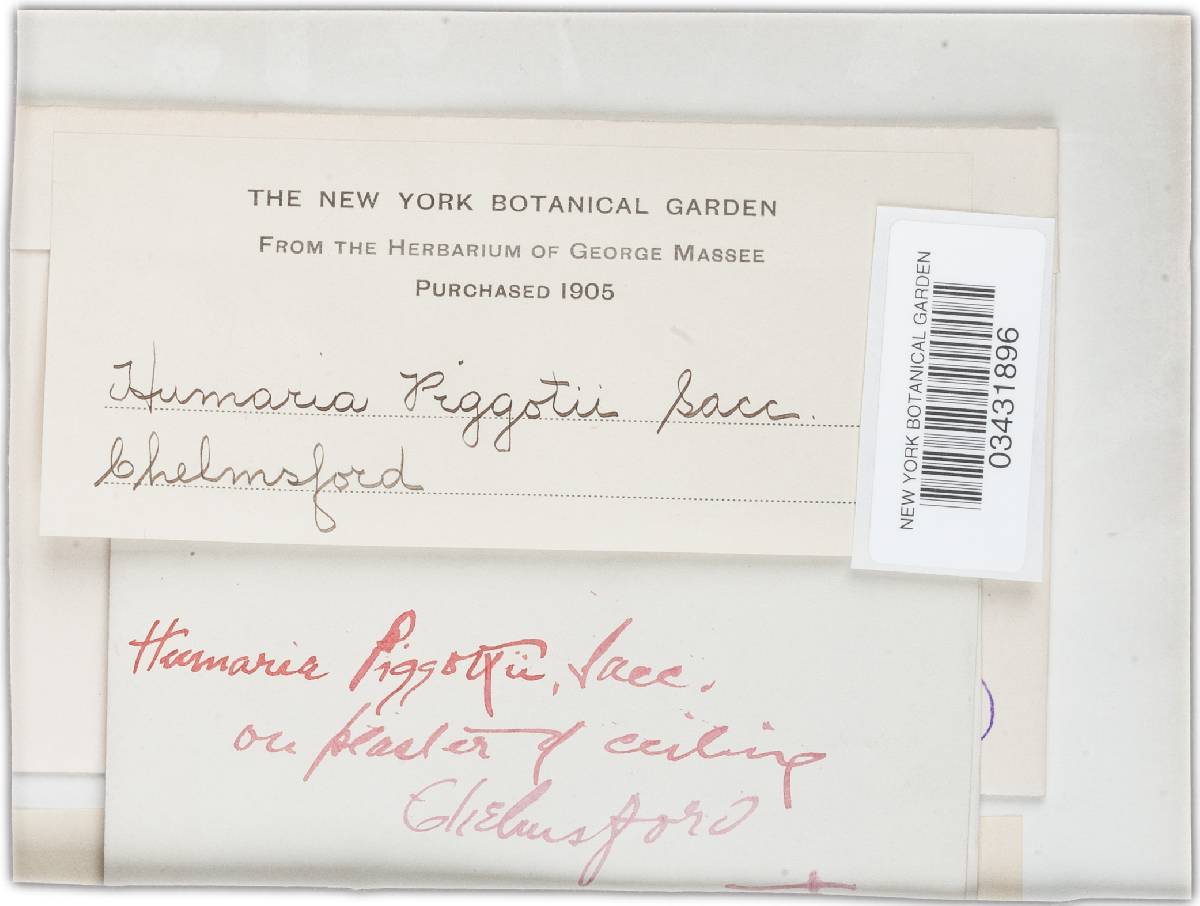 THE NEW YORK BOTANICAL GARDEN
FROM THE HERBARIUM OF GEORGE MASSEE
PURCHASED 1905
Humaria Piggotii Sacc.
Chelmsford
NEW YORK BOTANICAL GARDEN
03431896
Humaria Piggottii, Sacc.
on plaster of ceiling
Chelmsford